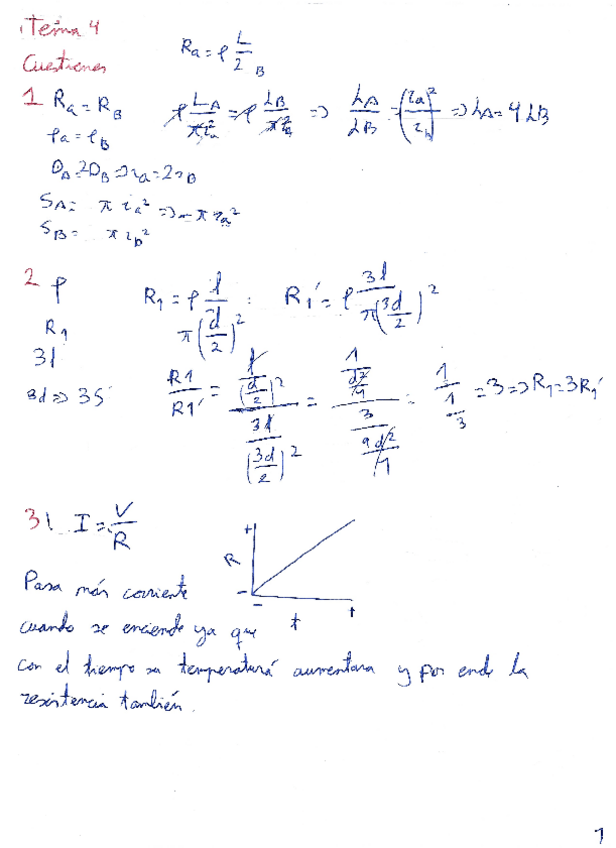 Tema 4
Cuestiones
Ra = ρ L/2 B
1 Ra = RB
ρ LA/πra² = ρ LB/πr² => LA/LB = (ra/rb)² => LA = 4LB
ρa = ρB
DA = 2DB => ra = 2rB
SA = π ra² => π ra²
SB = π rb²
2 ρ
R1 = ρ l/π(d/2)² : R1' = ρ 3l/π(3d/2)²
R1
3l
3d => 3S
R1/R1' = (l/(d/2)²)/(3l/(3d/2)²) = (1/(d²/1))/(3/(9d²/1)) = 1/(1/3) = 3 => R1 = 3R1'
3 I = V/R
R + - - t +
Pasa más corriente
cuando se enciende ya que
con el tiempo su temperaturá aumentara y por ende la
resistencia también.
1